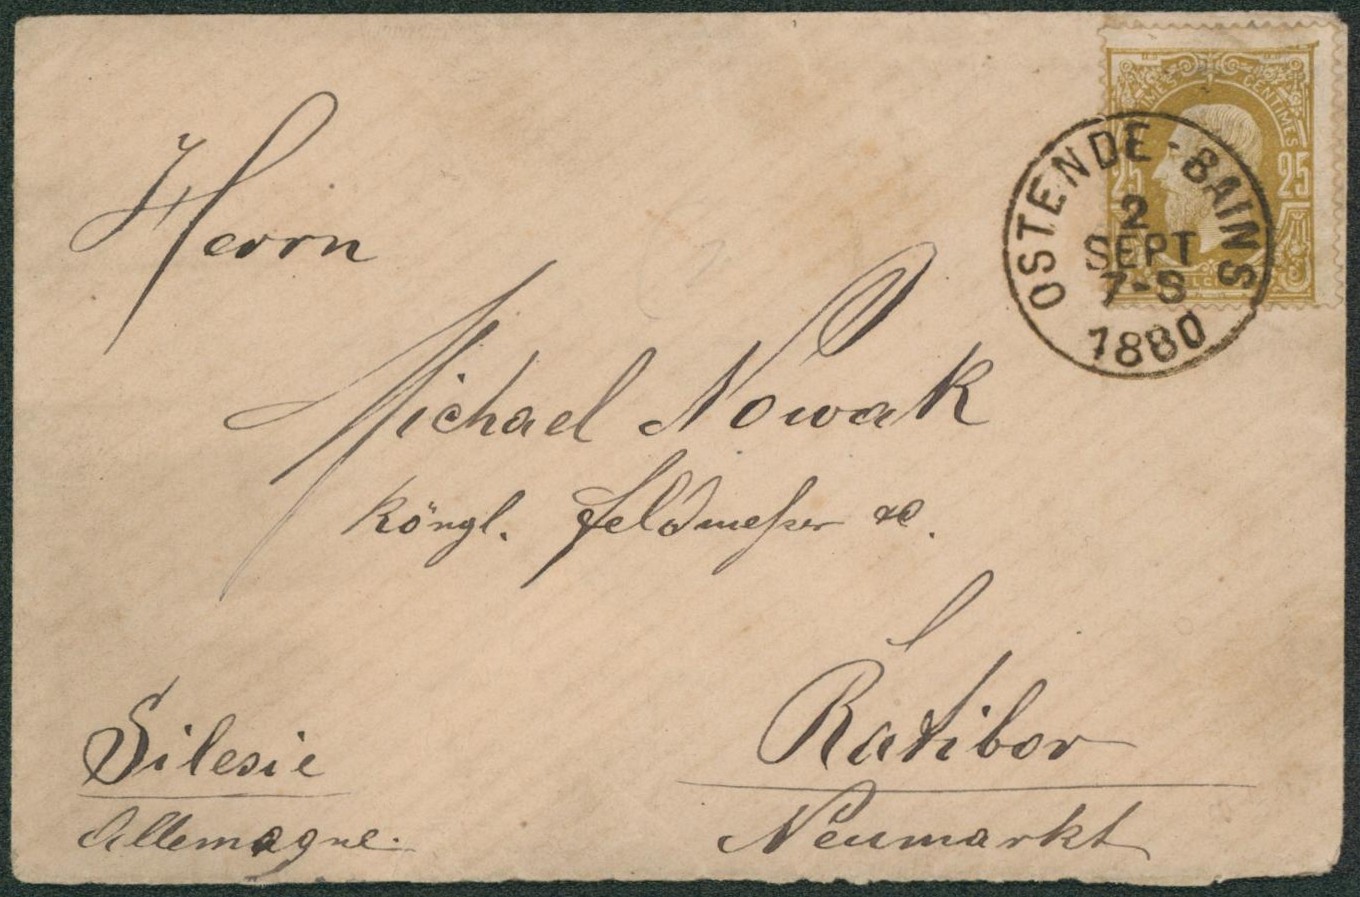 CENTIMES
25 25
OSTENDE-BAINS
2
SEPT
7-8
1880
Herrn
Michael Nowak
Köngl. Feldmeßer etc.
Ratibor
Neumarkt
Silesie
Allemagne.